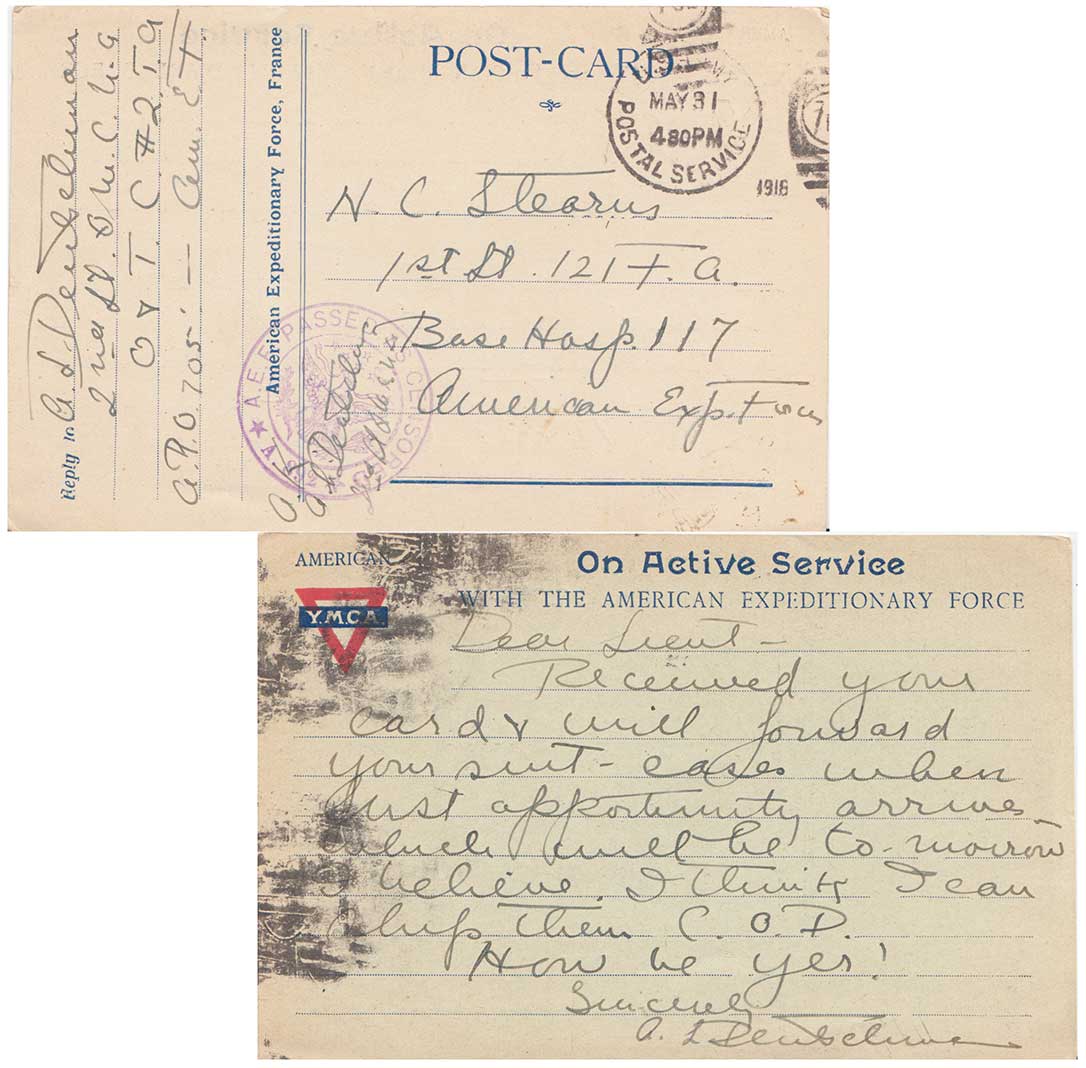 POST-CARD
MAY 31
4 30 PM
POSTAL SERVICE
1918
N. C. Stearns
1st Lt. 121 F. A.
Base Hosp. 117
American Exp. Force
American Expeditionary Force, France
Reply to A. L. Deutschman
2nd Lt. D.M.C. N.G
O & T C #2. T.A
A.P.O. 705 — Am. E. F.
A.E.F. PASSED
A. L. Deutschman
AMERICAN
Y.M.C.A.
On Active Service
WITH THE AMERICAN EXPEDITIONARY FORCE
Dear Lieut -
Received your
card & will forward
your suit-cases when
first opportunity arrives
which will be to-morrow
I believe. I think I can
ship them C. O. D.
How be yer!
Sincerely
A. L. Deutschman